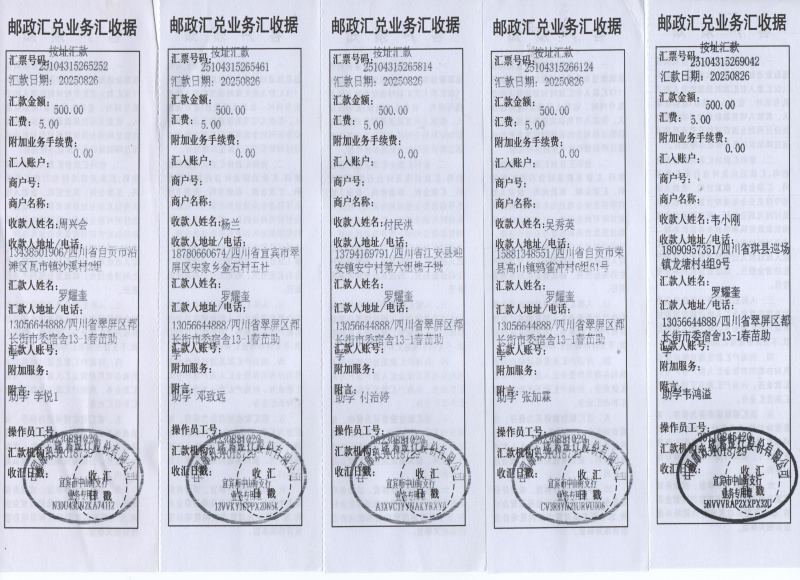 邮政汇兑业务汇收据
按址汇款
汇票号码:
25104315265252
汇款日期: 20250826
汇款金额:
500.00
汇费:
5.00
附加业务手续费:
0.00
汇入账户:
商户号:
商户名称:
收款人姓名:周兴会
收款人地址/电话:
13438501906/四川省自贡市沿
滩区瓦市镇沙溪村2组
汇款人姓名:
罗耀奎
汇款人地址/电话:
13056644888/四川省翠屏区都
长街市委宿舍13-1春苗助
学
汇款人账号:
附加服务:
附言:
助学 李悦1
操作员工号:
汇款机构
收汇日戳:
收 汇
日 戳
宜宾市中山街支行
业务专用章
邮政汇兑业务汇收据
按址汇款
汇票号码:
25104315265461
汇款日期: 20250826
汇款金额:
500.00
汇费:
5.00
附加业务手续费:
0.00
汇入账户:
商户号:
商户名称:
收款人姓名:杨兰
收款人地址/电话:
18780660674/四川省宜宾市翠
屏区宋家乡金石村五社
汇款人姓名:
罗耀奎
汇款人地址/电话:
13056644888/四川省翠屏区都
长街市委宿舍13-1春苗助
学
汇款人账号:
附加服务:
附言:
助学 邓致远
操作员工号:
汇款机构
收汇日戳:
收 汇
日 戳
宜宾市中山街支行
业务专用章
邮政汇兑业务汇收据
按址汇款
汇票号码:
25104315265814
汇款日期: 20250826
汇款金额:
500.00
汇费:
5.00
附加业务手续费:
0.00
汇入账户:
商户号:
商户名称:
收款人姓名:付民洪
收款人地址/电话:
13794169791/四川省江安县迎
安镇安宁村第六组桃子坳
汇款人姓名:
罗耀奎
汇款人地址/电话:
13056644888/四川省翠屏区都
长街市委宿舍13-1春苗助
学
汇款人账号:
附加服务:
附言:
助学 付治婷
操作员工号:
汇款机构
收汇日戳:
收 汇
日 戳
宜宾市中山街支行
业务专用章
邮政汇兑业务汇收据
按址汇款
汇票号码:
25104315266124
汇款日期: 20250826
汇款金额:
500.00
汇费:
5.00
附加业务手续费:
0.00
汇入账户:
商户号:
商户名称:
收款人姓名:吴秀英
收款人地址/电话:
15881348551/四川省自贡市荣
县高山镇鸦雀冲村6组81号
汇款人姓名:
罗耀奎
汇款人地址/电话:
13056644888/四川省翠屏区都
长街市委宿舍13-1春苗助
学
汇款人账号:
附加服务:
附言:
助学 张加霖
操作员工号:
汇款机构
收汇日戳:
收 汇
日 戳
宜宾市中山街支行
业务专用章
邮政汇兑业务汇收据
按址汇款
汇票号码:
25104315269042
汇款日期: 20250826
汇款金额:
500.00
汇费:
5.00
附加业务手续费:
0.00
汇入账户:
商户号:
商户名称:
收款人姓名:韦小刚
收款人地址/电话:
18090957351/四川省珙县巡场
镇龙塘村4组9号
汇款人姓名:
罗耀奎
汇款人地址/电话:
13056644888/四川省翠屏区都
长街市委宿舍13-1春苗助
学
汇款人账号:
附加服务:
附言:
助学韦鸿溢
操作员工号:
汇款机构
收汇日戳:
收 汇
日 戳
宜宾市中山街支行
业务专用章